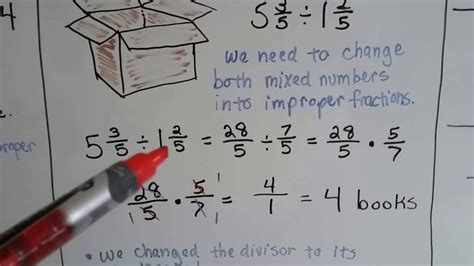 5 3/5 ÷ 1 2/5
we need to change
both mixed numbers
into improper fractions.
5 3/5 ÷ 1 2/5 = 28/5 ÷ 7/5 = 28/5 · 5/7
28/5 · 5/7 = 4/1 = 4 books
1 1 1
• we changed the divisor to its